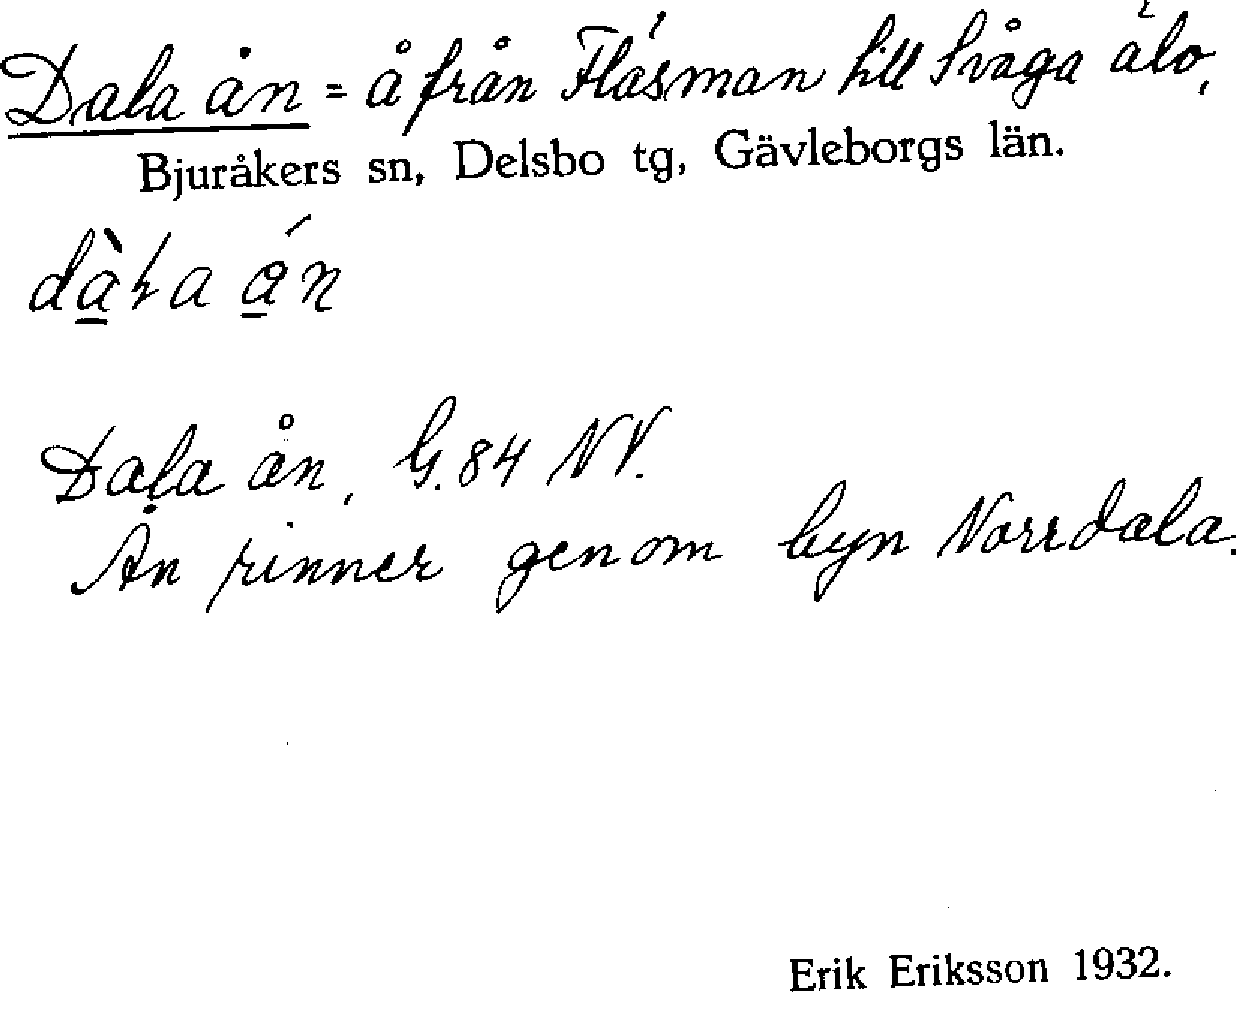 Dala ån = å från Flåsman till Svåga älv,
Bjuråkers sn, Delsbo tg, Gävleborgs län.
Dala ån, G. 84 NV.
Ån rinner genom byn Norrdala.
Erik Eriksson 1932.